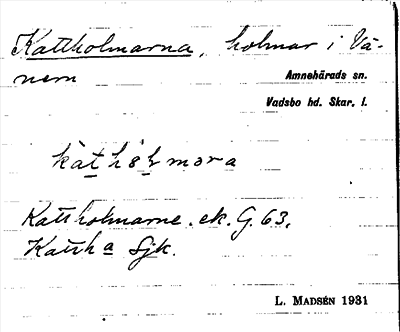 Kattholmarna, holmar i Vä-
nern
Amnehärads sn.
Vadsbo hd. Skar. l.
kathólmara
Kattholmarne. ek. G. 63.
Katth a Sjk.
L. MADSÉN 1931